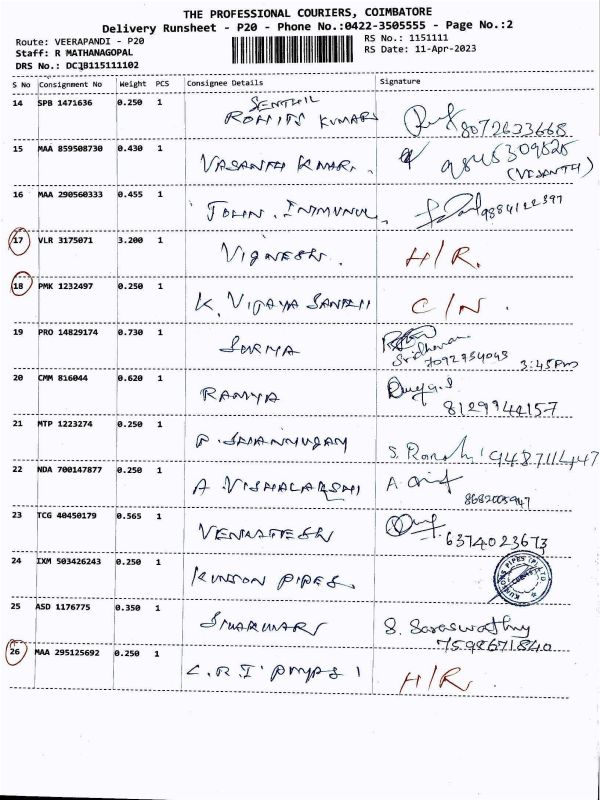 THE PROFESSIONAL COURIERS, COIMBATORE
Delivery Runsheet - P20 - Phone No.:0422-3505555 - Page No.:2
Route: VEERAPANDI - P20
RS No.: 1151111
Staff: R MATHANAGOPAL
RS Date: 11-Apr-2023
DRS No.: DCJB115111102
S No Consignment No Weight PCS Consignee Details Signature
14 SPB 1471636 0.250 1 SENTHIL
ROHITH KUMAR 8072633668
15 MAA 859508730 0.430 1 VASANTH KUMAR. 9845309828
(VASANTH)
16 MAA 290560333 0.455 1 JOHN. 9884122397
17 VLR 3175071 3.200 1 VIGNESH. H/R.
18 PMK 1232497 0.250 1 K. VIJAYA C/N.
19 PRO 14829174 0.730 1 SURYA
Sridharan
7092754043 3:45 Pm
20 CMM 816044 0.620 1 RAMYA
8129944157
21 MTP 1223274 0.250 1 P. SHANMUGAM S. 9487111447
22 NDA 700147877 0.250 1 A VISHALAKSHI A.
8682005947
23 TCG 40450179 0.565 1 VENKATESH 6374023673
24 IXM 503426243 0.250 1 KUNDON PIPES.
25 ASD 1176775 0.350 1 S. Saraswathy
7598671840
26 MAA 295125692 0.250 1 C.R.I PUMPS H/R.